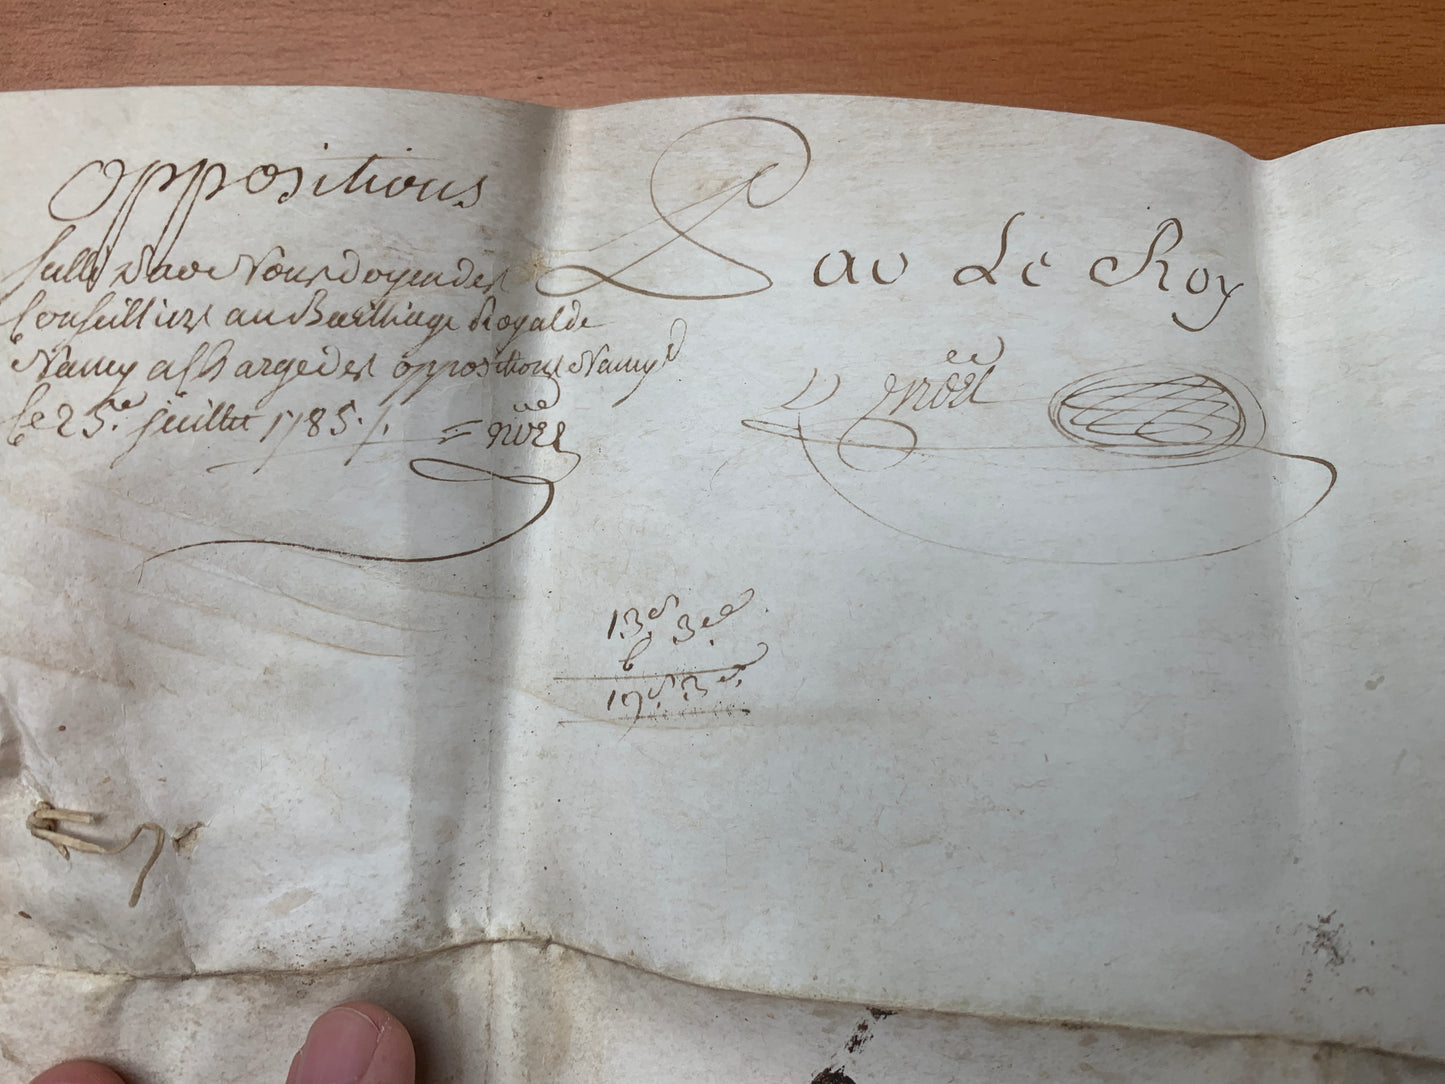 oppositions
Scellé par Nous doyen des
Conseilliers au Bailliage Royal de
Nancy a charge des oppositions Nancy
Le 25.e juillet 1785 ./. = noël
Par Le Roy
noël
13 3
6
19 3